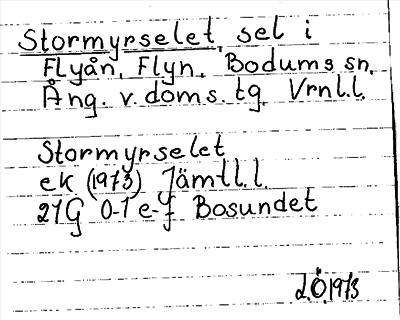 Stormyrselet sel i
Flyån, Flyn. Bodums sn.
Ång. v. doms. tg. Vrnl.l.
Stormyrselet
ek (1973) Jämtl.l.
21G 0-1 e-f Bosundet
L.Ö. 1973